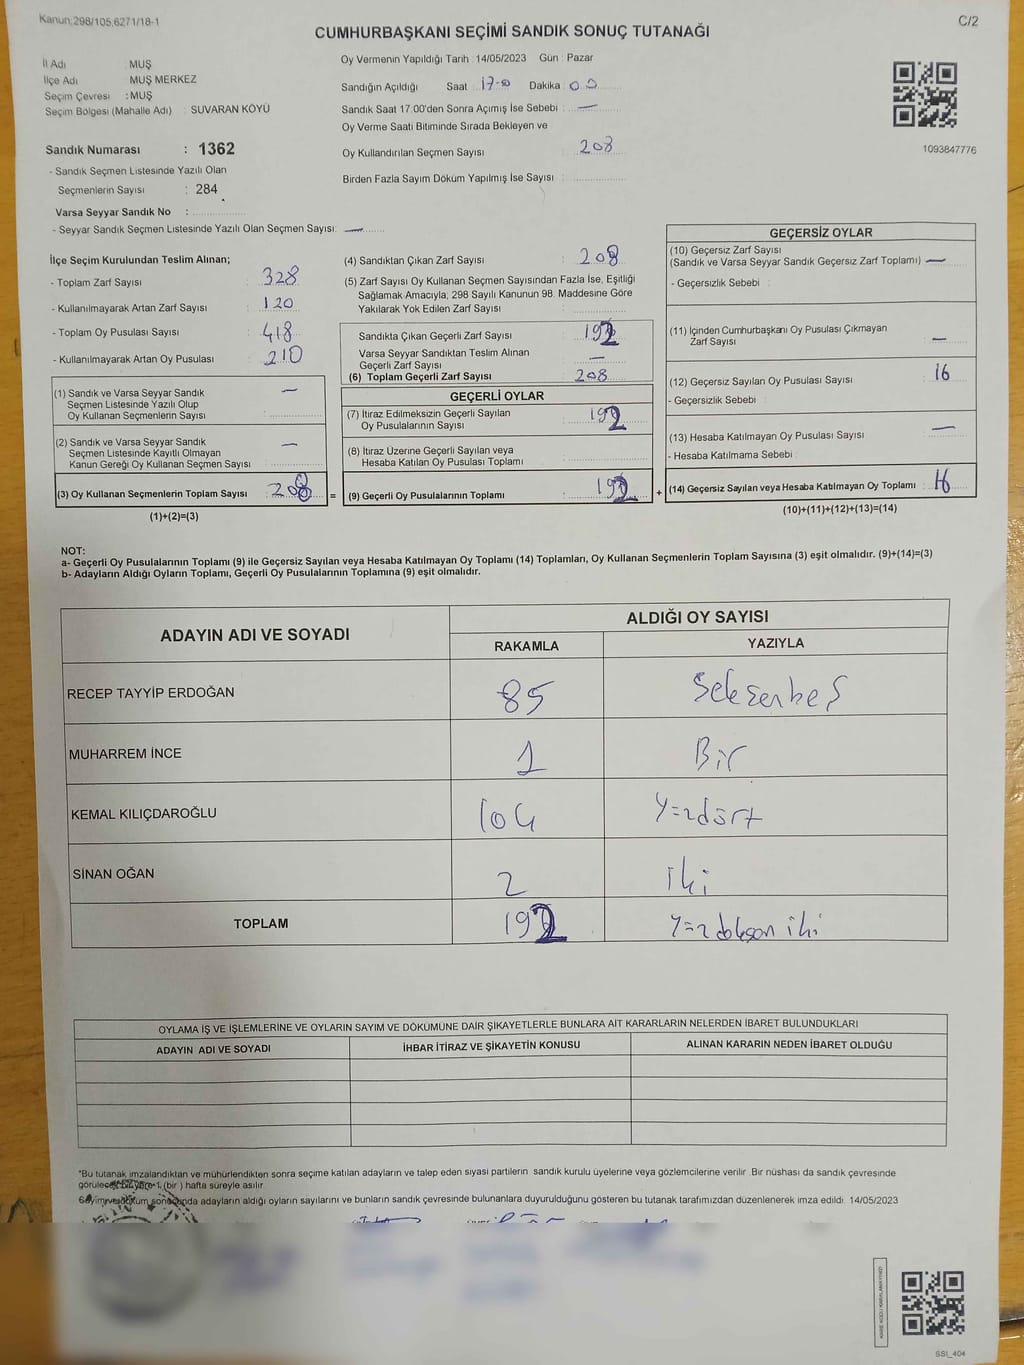 Kanun:298/105,6271/18-1
C/2
CUMHURBAŞKANI SEÇİMİ SANDIK SONUÇ TUTANAĞI
İl Adı MUŞ
İlçe Adı MUŞ MERKEZ
Seçim Çevresi : MUŞ
Seçim Bölgesi (Mahalle Adı) : SUVARAN KÖYÜ
Sandık Numarası : 1362
- Sandık Seçmen Listesinde Yazılı Olan
Seçmenlerin Sayısı : 284
Varsa Seyyar Sandık No :
- Seyyar Sandık Seçmen Listesinde Yazılı Olan Seçmen Sayısı: —
Oy Vermenin Yapıldığı Tarih : 14/05/2023 Gün : Pazar
Sandığın Açıldığı Saat : 17:00 Dakika : 00
Sandık Saat 17:00'den Sonra Açımış İse Sebebi : —
Oy Verme Saati Bitiminde Sırada Bekleyen ve
Oy Kullandırılan Seçmen Sayısı : 208
Birden Fazla Sayım Döküm Yapılmış İse Sayısı :
1093847776
İlçe Seçim Kurulundan Teslim Alınan;
- Toplam Zarf Sayısı : 328
- Kullanılmayarak Artan Zarf Sayısı : 120
- Toplam Oy Pusulası Sayısı : 418
- Kullanılmayarak Artan Oy Pusulası : 210
(1) Sandık ve Varsa Seyyar Sandık —
Seçmen Listesinde Yazılı Olup
Oy Kullanan Seçmenlerin Sayısı :
(2) Sandık ve Varsa Seyyar Sandık —
Seçmen Listesinde Kayıtlı Olmayan
Kanun Gereği Oy Kullanan Seçmen Sayısı :
(3) Oy Kullanan Seçmenlerin Toplam Sayısı : 208
(1)+(2)=(3)
(4) Sandıktan Çıkan Zarf Sayısı : 208
(5) Zarf Sayısı Oy Kullanan Seçmen Sayısından Fazla İse, Eşitliği
Sağlamak Amacıyla; 298 Sayılı Kanunun 98. Maddesine Göre
Yakılarak Yok Edilen Zarf Sayısı :
Sandıkta Çıkan Geçerli Zarf Sayısı : 192
Varsa Seyyar Sandıktan Teslim Alınan
Geçerli Zarf Sayısı : —
(6) Toplam Geçerli Zarf Sayısı : 208
GEÇERLİ OYLAR
(7) İtiraz Edilmeksizin Geçerli Sayılan
Oy Pusulalarının Sayısı : 192
(8) İtiraz Üzerine Geçerli Sayılan veya
Hesaba Katılan Oy Pusulası Toplamı :
= (9) Geçerli Oy Pusulalarının Toplamı : 192
GEÇERSİZ OYLAR
(10) Geçersiz Zarf Sayısı
(Sandık ve Varsa Seyyar Sandık Geçersiz Zarf Toplamı) : —
- Geçersizlik Sebebi :
(11) İçinden Cumhurbaşkanı Oy Pusulası Çıkmayan
Zarf Sayısı : —
(12) Geçersiz Sayılan Oy Pusulası Sayısı : 16
- Geçersizlik Sebebi :
(13) Hesaba Katılmayan Oy Pusulası Sayısı : —
- Hesaba Katılmama Sebebi :
+ (14) Geçersiz Sayılan veya Hesaba Katılmayan Oy Toplamı : 16
(10)+(11)+(12)+(13)=(14)
NOT:
a- Geçerli Oy Pusulalarının Toplamı (9) ile Geçersiz Sayılan veya Hesaba Katılmayan Oy Toplamı (14) Toplamları, Oy Kullanan Seçmenlerin Toplam Sayısına (3) eşit olmalıdır. (9)+(14)=(3)
b- Adayların Aldığı Oyların Toplamı, Geçerli Oy Pusulalarının Toplamına (9) eşit olmalıdır.
ADAYIN ADI VE SOYADI ALDIĞI OY SAYISI
RAKAMLA YAZIYLA
RECEP TAYYİP ERDOĞAN 85 Seksenbeş
MUHARREM İNCE 1 Bir
KEMAL KILIÇDAROĞLU 104 Yüzdört
SİNAN OĞAN 2 iki
TOPLAM 192 Yüzdoksan iki
OYLAMA İŞ VE İŞLEMLERİNE VE OYLARIN SAYIM VE DÖKÜMÜNE DAİR ŞİKAYETLERLE BUNLARA AİT KARARLARIN NELERDEN İBARET BULUNDUKLARI
ADAYIN ADI VE SOYADI İHBAR İTİRAZ VE ŞİKAYETİN KONUSU ALINAN KARARIN NEDEN İBARET OLDUĞU
*Bu tutanak imzalandıktan ve mühürlendikten sonra seçime katılan adayların ve talep eden siyasi partilerin sandık kurulu üyelerine veya gözlemcilerine verilir .Bir nüshası da sandık çevresinde
(bir ) hafta süreyle asılır.
adayların aldığı oyların sayılarını ve bunların sandık çevresinde bulunanlara duyurulduğunu gösteren bu tutanak tarafımızdan düzenlenerek imza edildi. 14/05/2023
SSI_404